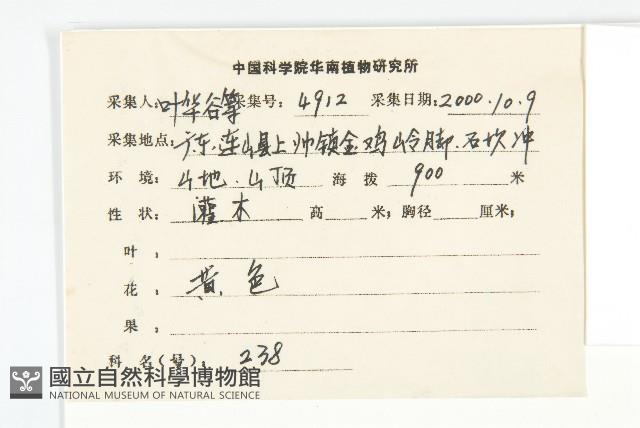 中国科学院华南植物研究所
采集人:叶华谷等 采集号: 4912 采集日期:2000.10.9
采集地点:广东.连山县上帅镇金鸡岭脚.石坎冲
环 境: 山地.山顶 海 拨 900 米
性 状: 灌木 高 米; 胸径 厘米;
叶 :
花 : 黄色
果 :
科 名(号): 238
國立自然科學博物館
NATIONAL MUSEUM OF NATURAL SCIENCE